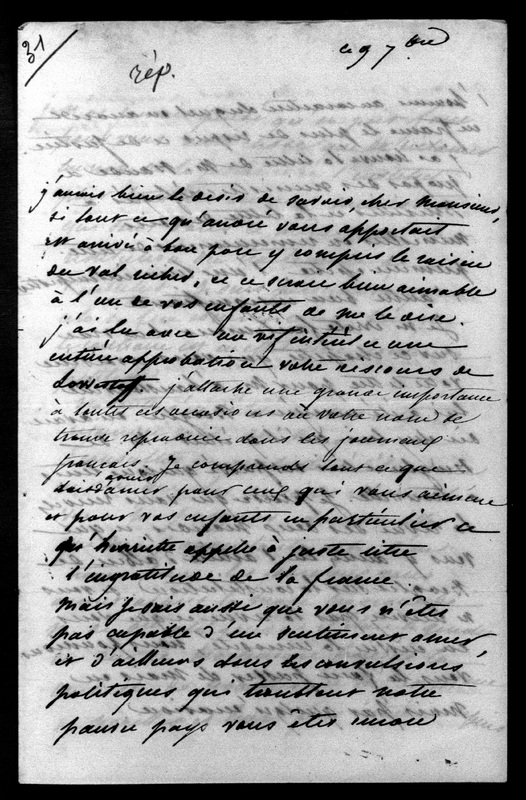 31
ce 9 7bre
rép.
j'aurais bien le désir de savoir, cher monsieur,
si tout ce qu'andré vous apportait
est arrivé à bon port y compris le raisin
du val richer, et ce serait bien aimable
à l'un de vos enfants de me le dire.
j'ai lu avec un vif intérêt et une
entière approbation votre discours de
Lowestoff j'attache une grande importance
à toutes ces occasions où votre nom se
trouve reproduit dans les journaux
français. Je comprends tout ce que
doit avoir d'amer pour ceux qui vous aiment
et pour vos enfants en particulier ce
qu'henriette appelle à juste titre
l'ingratitude de la france.
mais je sais aussi que vous n'êtes
pas capable d'un sentiment amer,
et d'ailleurs dans les convulsions
politiques qui troublent notre
pauvre pays vous êtes encore